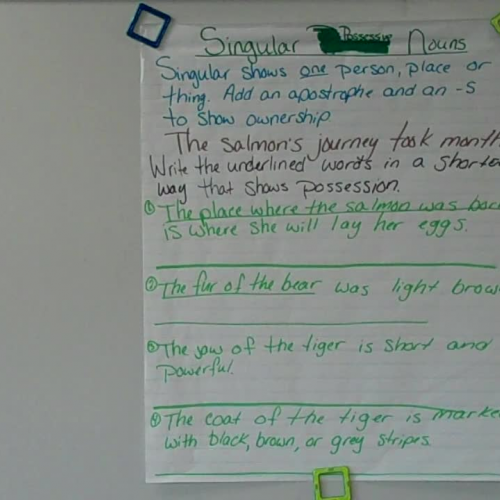 Singular Possessiv Nouns
Singular shows one person, place or
thing. Add an apostrophe and an -s
to show ownership
The salmon's journey took month
Write the underlined words in a shorte
way that shows possession.
① The place where the salmon was bor
is where she will lay her eggs.
② The fur of the bear was light brow
③ The jaw of the tiger is short and
powerful.
④ The coat of the tiger is marke
with black, brown, or grey stripes.